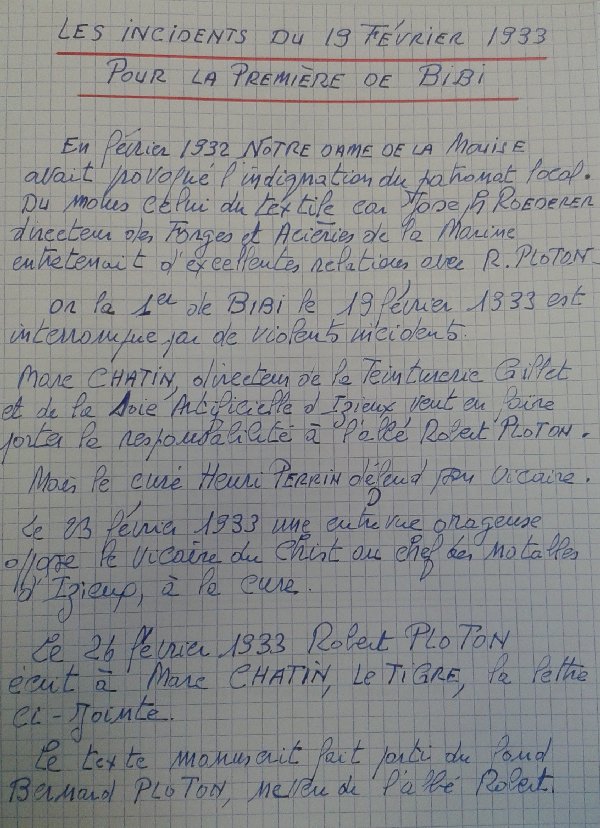 LES INCIDENTS DU 19 FÉVRIER 1933
POUR LA PREMIÈRE DE BIBI
En février 1932 NOTRE DAME DE LA MOUISE
avait provoqué l'indignation du patronat local.
Du moins celui du textile car Joseph ROEDERER
directeur des Forges et Aciéries de la Marine
entretenait d'excellentes relations avec R. PLOTON.
Or la 1er de BIBI le 19 février 1933 est
interrompue par de violents incidents.
Marc CHATIN, directeur de la Teinturerie Gillet
et de la Soie Artificielle d'Izieux veut en faire
porter la responsabilité à l'abbé Robert PLOTON.
Mais le curé Henri PERRIN défend son vicaire.
Le 23 février 1933 une entrevue orageuse
oppose le vicaire du Christ au chef des notables
d'Izieux, à la cure.
Le 26 février 1933 Robert PLOTON
écrit à Marc CHATIN, LE TIGRE, la lettre
ci-jointe.
Le texte manuscrit fait parti du fond
Bernard PLOTON, neveu de l'abbé Robert.